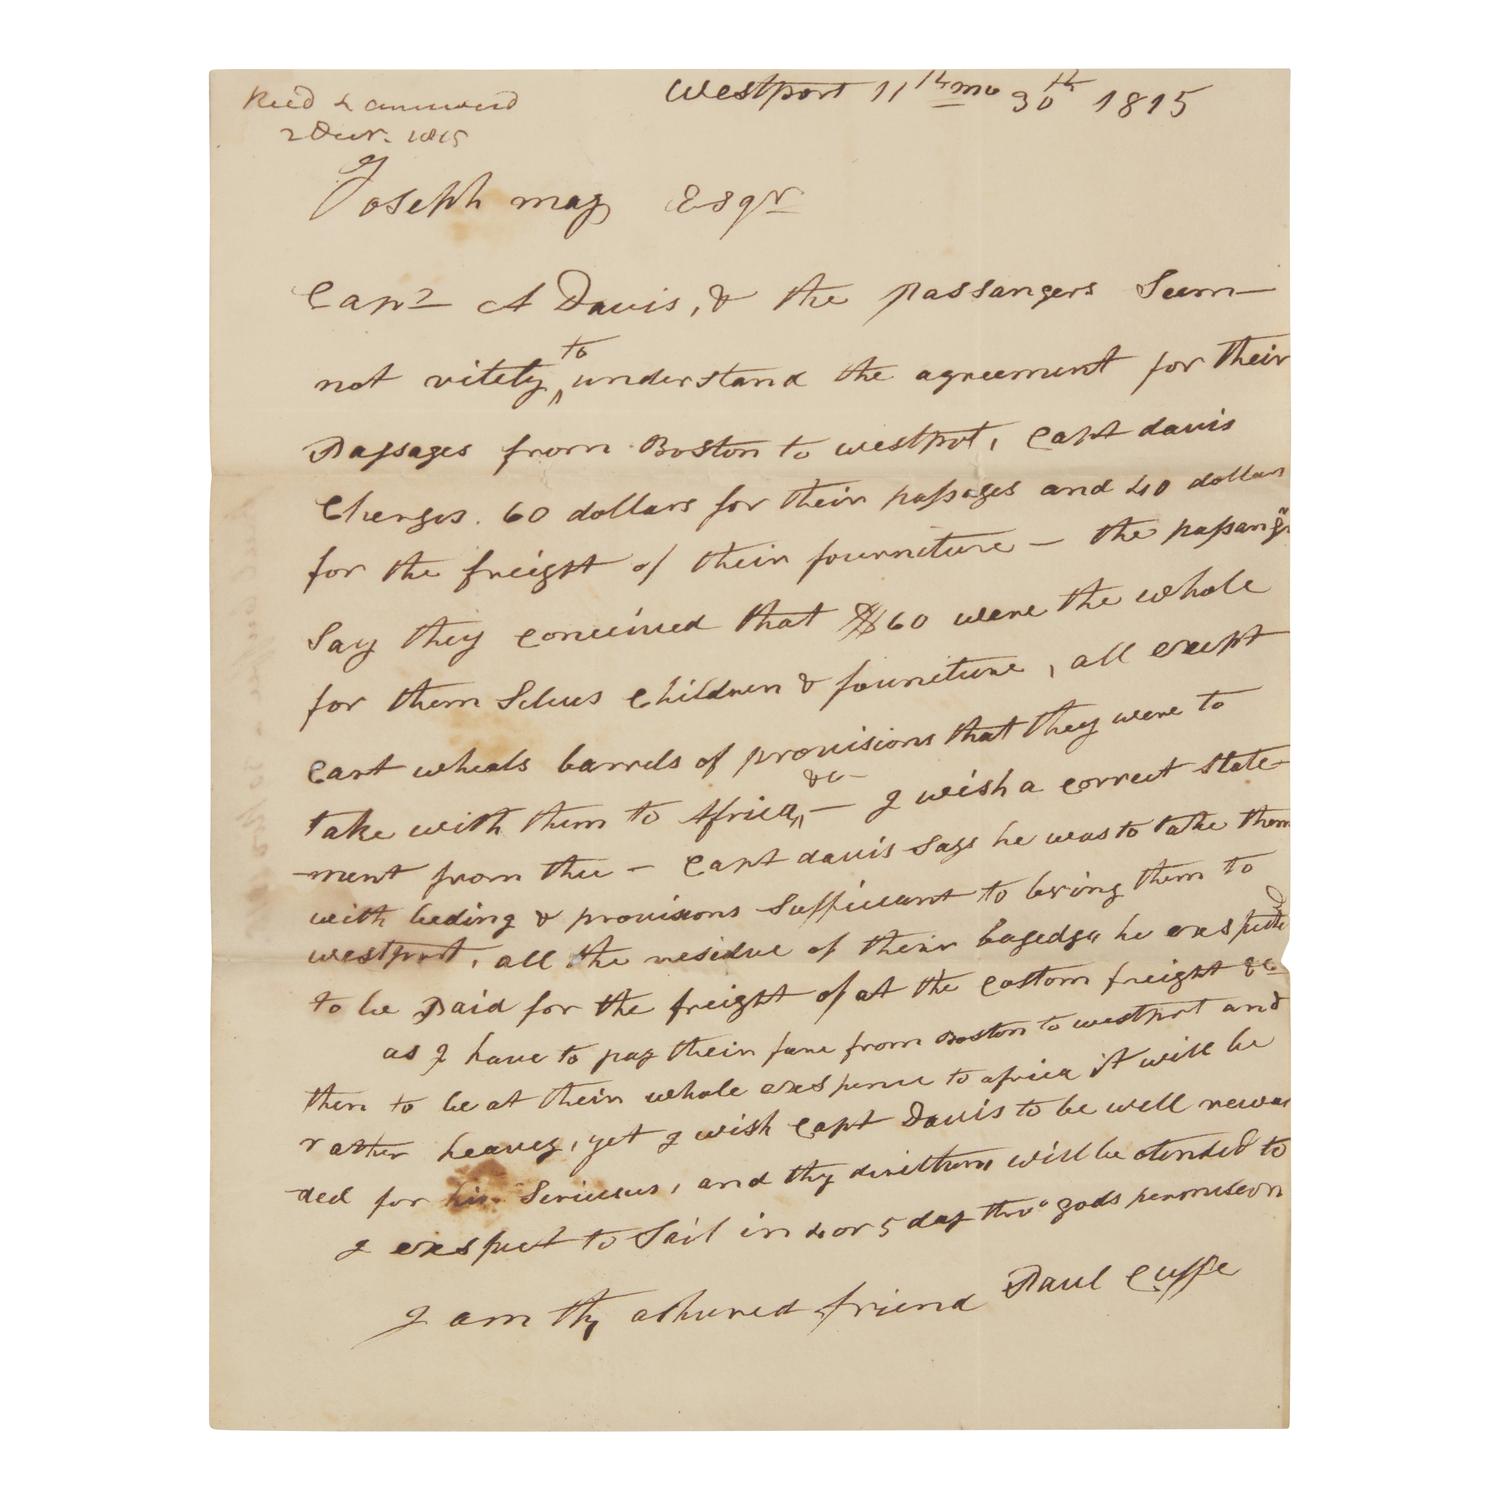 Recd & answered
2 Decr. 1815
Westport 11th mo 30th 1815
Joseph may Esqr
Capt A Davis, & the passangers Seem
not vitely to understand the agreement for their
Passages from Boston to westport, Capt davis
Charges. 60 dollars for their passages and 40 dollars
for the freight of their fourniture — the passangr
Say they conceived that $60 were the whole
for them Selves Children & founiture, all except
Cart wheals barrels of provisions that they were to
take with them to Africa, &c — I wish a correct state
ment from thee — Capt davis Says he was to take them
with beding & provisions Sufficient to bring them to
westport, all the residue of their bagedge he exspected
to be Paid for the freight of at the Costom freight &c
as I have to pay their fare from Boston to westport and
then to be at their whole exspence to africa it will be
rather heavey, yet I wish Capt Davis to be well rewar
ded for his Serviceses, and thy direcktions will be atended to
I exspect to Sail in 4 or 5 day thro gods permiseon
I am thy ashured friend Paul Cuffe